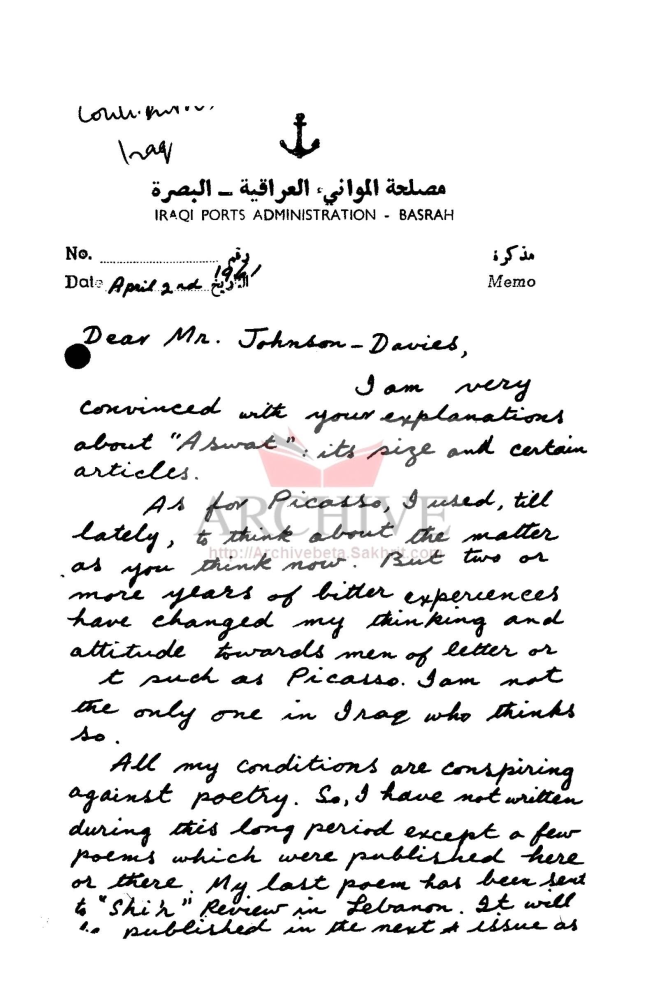 Iraq
مصلحة الموانيء العراقية - البصرة
IRAQI PORTS ADMINISTRATION - BASRAH
No. رقم مذكرة
Date April 2nd 1961 التاريخ Memo
Dear Mr. Johnson-Davies,
I am very
convinced with your explanations
about "Aswat": its size and certain
articles.
As for Picasso, I used, till
lately, to think about the matter
as you think now. But two or
more years of bitter experiences
have changed my thinking and
attitude towards men of letter or
t such as Picasso. I am not
the only one in Iraq who thinks
so.
All my conditions are conspiring
against poetry. So, I have not written
during this long period except a few
poems which were published here
or there. My last poem has been sent
to "Shi'r" Review in Lebanon. It will
published in the next issue as
ARCHIVE
http://Archivebeta.Sakhrit.com